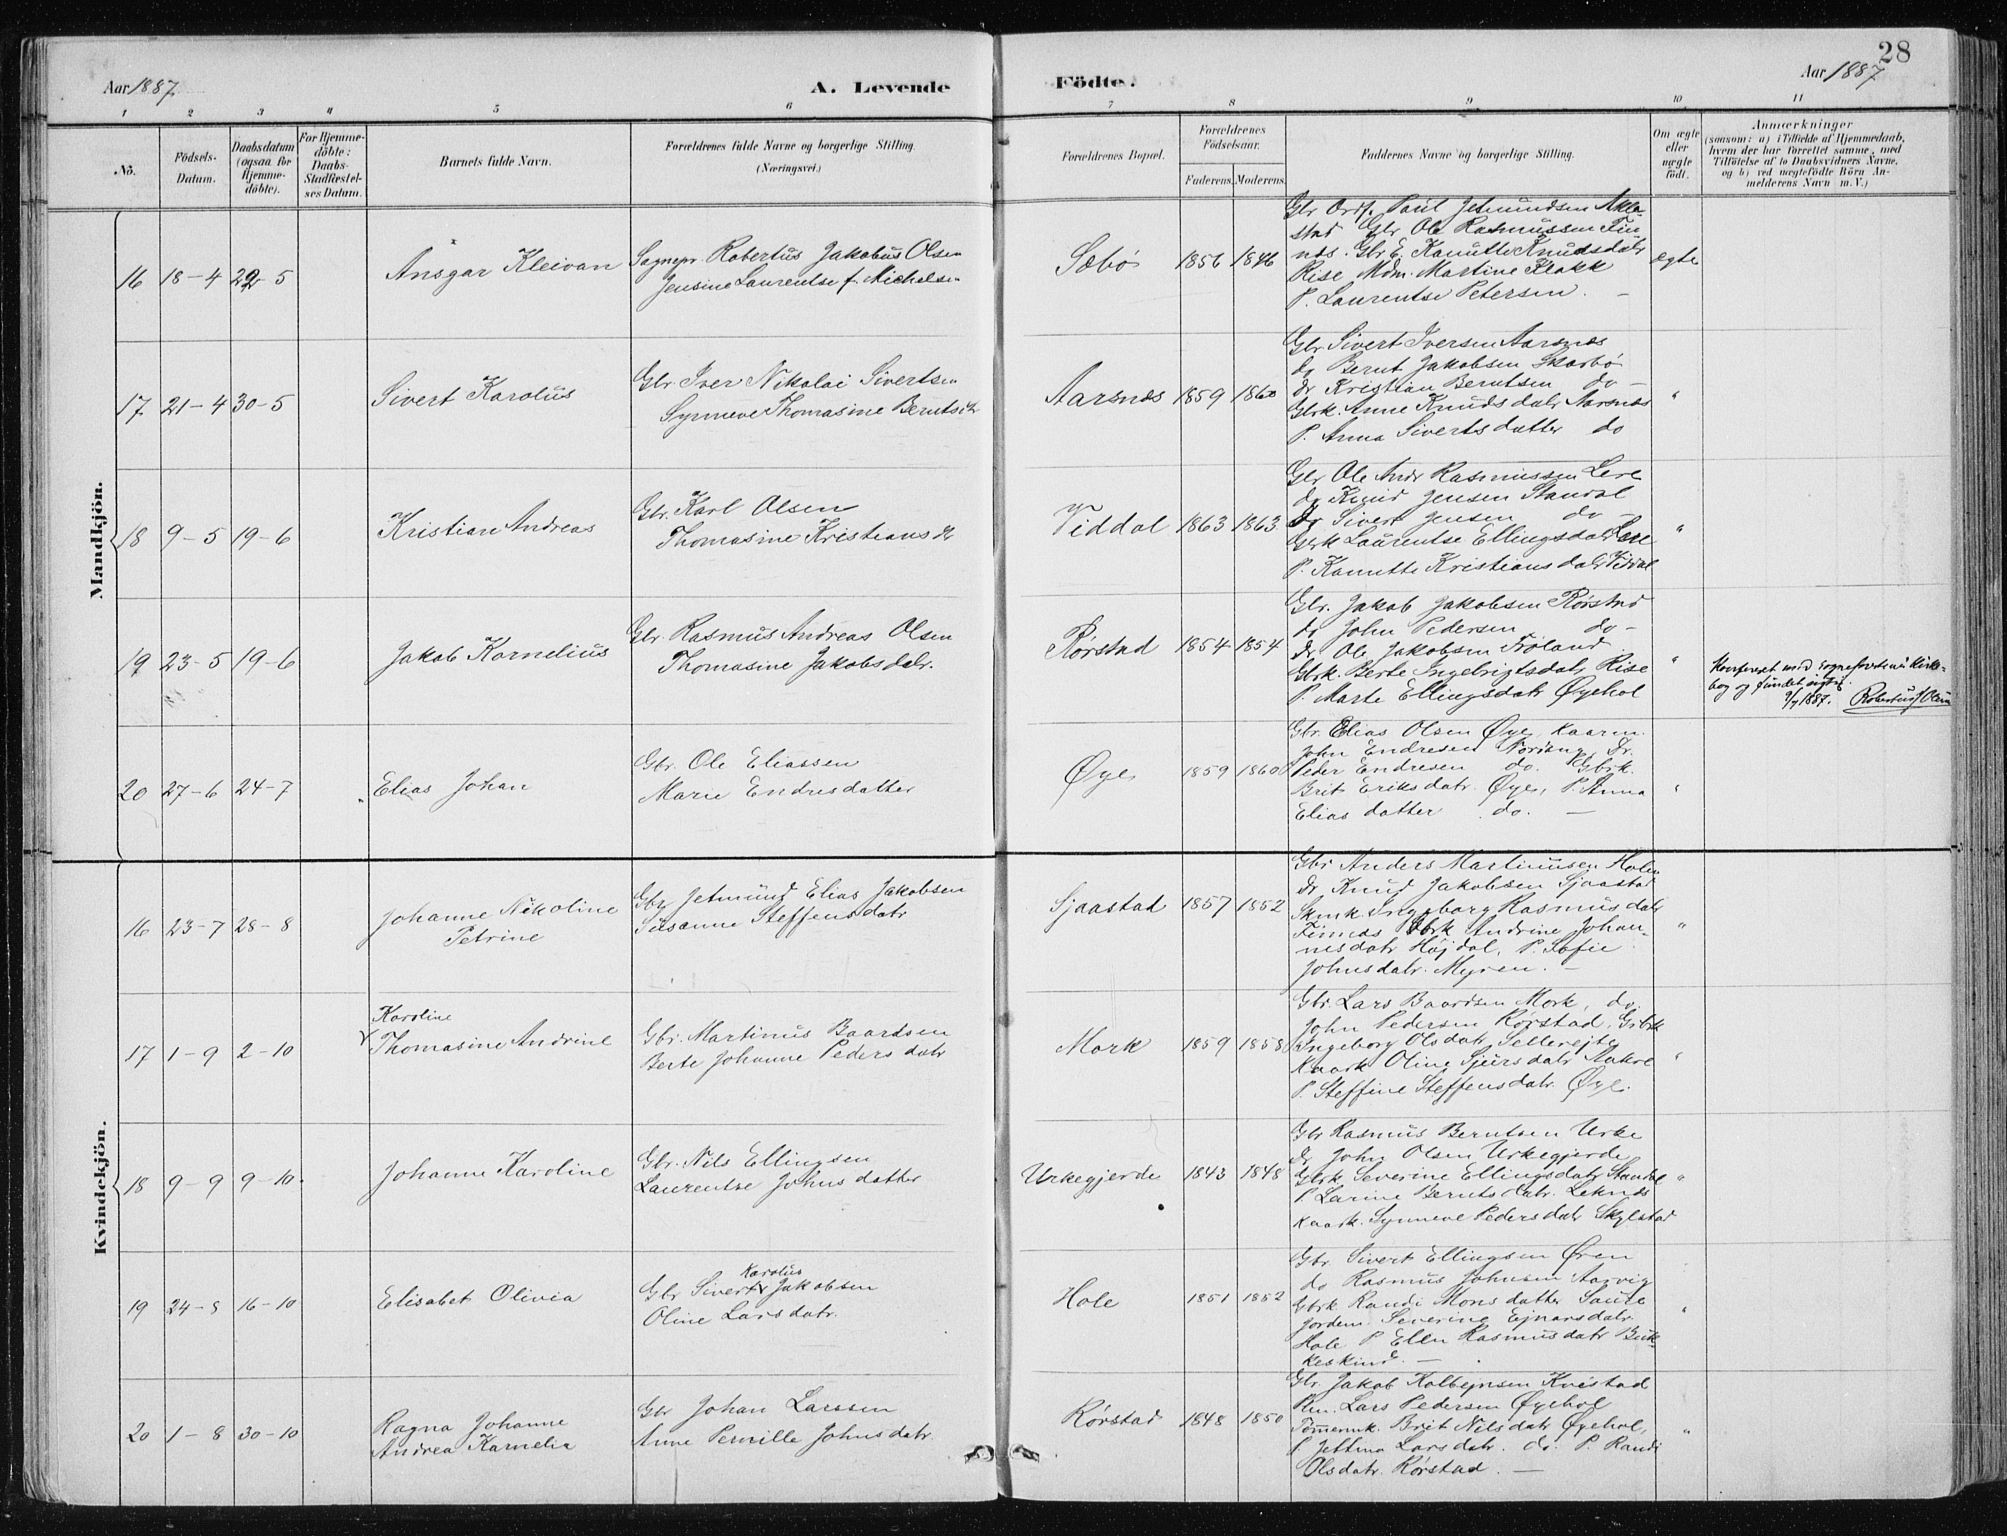 28
Aar 1887.
A. Levende
Födte.
Aar 1887
1 2 3 4 5 6 7 8 9 10 11
No.
Födsels-Datum.
Daabsdatum (ogsaa for Hjemme-döbte).
For Hjemme-döbte: Daabs-Stadfæstel-ses Datum.
Barnets fulde Navn.
Forældrenes fulde Navne og borgerlige Stilling.
(Næringsvei.)
Forældrenes Bopæl.
Forældrenes Födselsaar.
Faderens. Moderens.
Faddernes Navne og borgerlige Stilling.
Om ægte eller uægte födt.
Anmærkninger
(saasom: a) i Tilfælde af Hjemmedaab,
hvem der har forrettet samme, med
Tilföielse af to Daabsvidners Navne,
og b) ved uægtefödte Börn An-
melderens Navn m. V.)
Mandkjön.
16 18-4 22-5
Ansgar Kleivan
Sognepr. Robertus Jakobus Olsen
Jensine Laurentse f. Michelsen
Sæbø 1856 1846
Gbr Ordf. Paul Jetmundsen Akle-
stad Gbr Ole Rasmussen Fin-
nes. Gbr E. Kanutte Knudsdatr
Rise Mdm. Martine Flakk
P. Laurentse Petersen. —
ægte
17 21-4 30-5
Sivert Karolus
Gbr Iver Nikolai Sivertsen
Synneve Thomasine Berntsdtr
Aarsnes 1859 1860
Gbr Sivert Iversen Aarsnes
do Bernt Jakobsen Skarbø
Dr Kristian Berntsen do —
Gbrk. Anne Knudsdatr Aarsnes
P. Anna Sivertsdatter do
"
18 9-5 19-6
Kristian Andreas
Gbr. Karl Olsen
Thomasine Kristiansdr
Viddal 1863 1863
Gbr Ole Andr Rasmussen Lere
do Knud Jensen Standal
Dr Sivert Jensen do —
Gbrk Laurentse Ellingsdatr Lere
P. Kanutte Kristiansdatr Viddal
"
19 23-5 19-6
Jakob Kornelius
Gbr. Rasmus Andreas Olsen
Thomasine Jakobsdatr.
Rørstad 1854 1854
Gbr. Jakob Jakobsen Rørstad
do John Pedersen do —
Dr Ole Jakobsen Froland
Gbrk. Berte Ingebrigtsdatr Rise
P. Marte Ellingsdatr Øyehol
"
Konfereret med Sognepræstens Kirke-
bog og fundet rigtig.
9/7 1887. Robertus J Olsen
20 27-6 24-7
Elias Johan
Gbr. Ole Eliassen
Marie Endresdatter
Øye 1859 1860
Gbr. Elias Olsen Øye, Kaarm.
John Endresen Norang, Dr.
Peder Endresen do. Gbrk.
Brit Eriksdatr. Øye, P. Anna
Elias datter do. —
"
Kvindekjön.
16 23-7 28-8
Johanne Nikoline
Petrine
Gbr Jetmund Elias Jakobsen
Susanne Steffensdatr
Sjaastad 1857 1852
Gbr Anders Martinusen Holen
Dr Knud Jakobsen Sjaastad
Ingeborg Rasmusdatr
Finnes Gbrk Andrine Johan-
nesdatr Højdal, P. Sofie
Johnsdatr. Myren. —
"
17 1-9 2-10
Karoline
Thomasine Andrine
Gbr. Martinus Baardsen
Berte Johanne Pedersdatr
Mork 1859 1858
Gbr. Lars Baardsen Mork, do.
John Pedersen Rørstad, Gbrk
Ingeborg Olsdatr Sellereite
Kaark Oline Sjursdatr Aakre
P. Steffine Steffensdatr. Øye.
"
18 9-9 9-10
Johanne Karoline
Gbr. Nils Ellingsen
Laurentse Johnsdatter
Urkegjerde 1843 1848
Gbr Rasmus Berntsen Urke
Dr John Olsen Urkegjerde
Gbrk Severine Ellingsdatr Standal
P Larine Berntsdatr. Leknes
Kaark. Synneve Pedersdatr Skylstad
"
19 24-8 16-10
Elisabet Olivia
Karolus
Gbr Sivert Jakobsen
Oline Larsdatr.
Hole 1851 1852
Gbr. Sivert Ellingsen Øren
do Rasmus Johnsen Aarvig
Gbrk Randi Monsdatter Saure
Jordem. Severine Ejnarsdatr
Hole P Ellen Rasmusdatr Buk-
keskind. —
"
20 1-8 30-10
Ragna Johanne
Andrea Karnelia
Gbr Johan Larssen
Anne Pernille Johnsdatr.
Rørstad 1848 1850
Gbr. Jakob Kolbejnsen Kvistad
Lars Pedersen Øyehol
Tömermk. Brit Nilsdatr Øyehol,
P. Jettina Larsdatr. do. P. Randi
Olsdatr. Rørstad. —
"